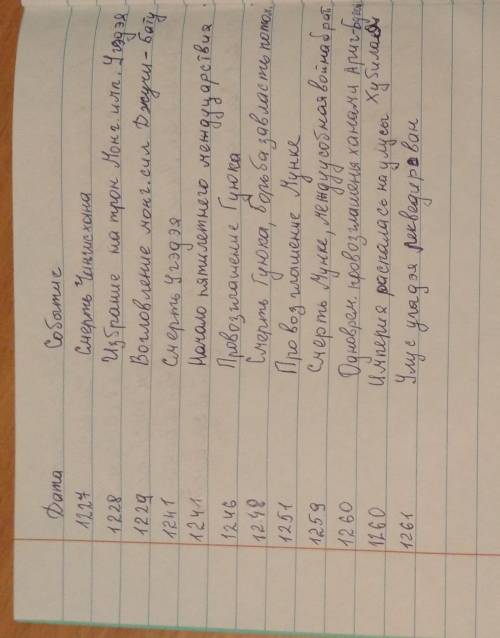 Дата Событие
1227 Смерть Чингисхана
1228 Избрание на трон Монг. имп. Угэдэя
1229 Возгловление монг. сил Джучи - Бату
1241 Смерть Угэдэя
1241 Начало пятилетнего междуцарствия
1246 Провозглашение Гуюка
1248 Смерть Гуюка, борьба за власть
1251 Провозглашение Мунке
1259 Смерть Мунке, междуусобная война брат
1260 Одноврем. провозглашены ханами Ариг-Буга
Хубилай
1260 Империя распалась на улусы
1261 Улус угэдэя